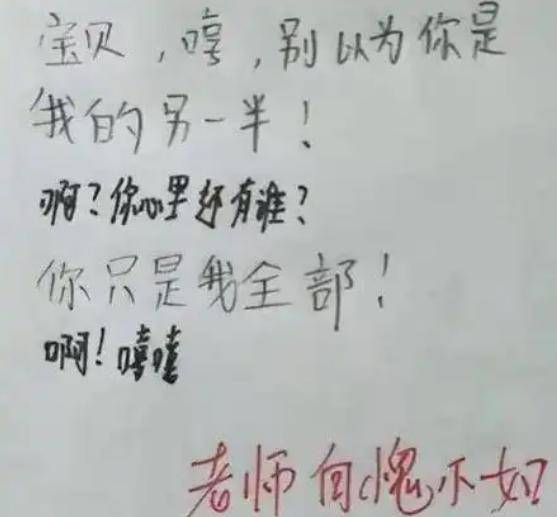 宝贝，哼，别以为你是
我的另一半！
啊？你心里还有谁？
你只是我全部！
啊！嘻嘻
老师自愧不如